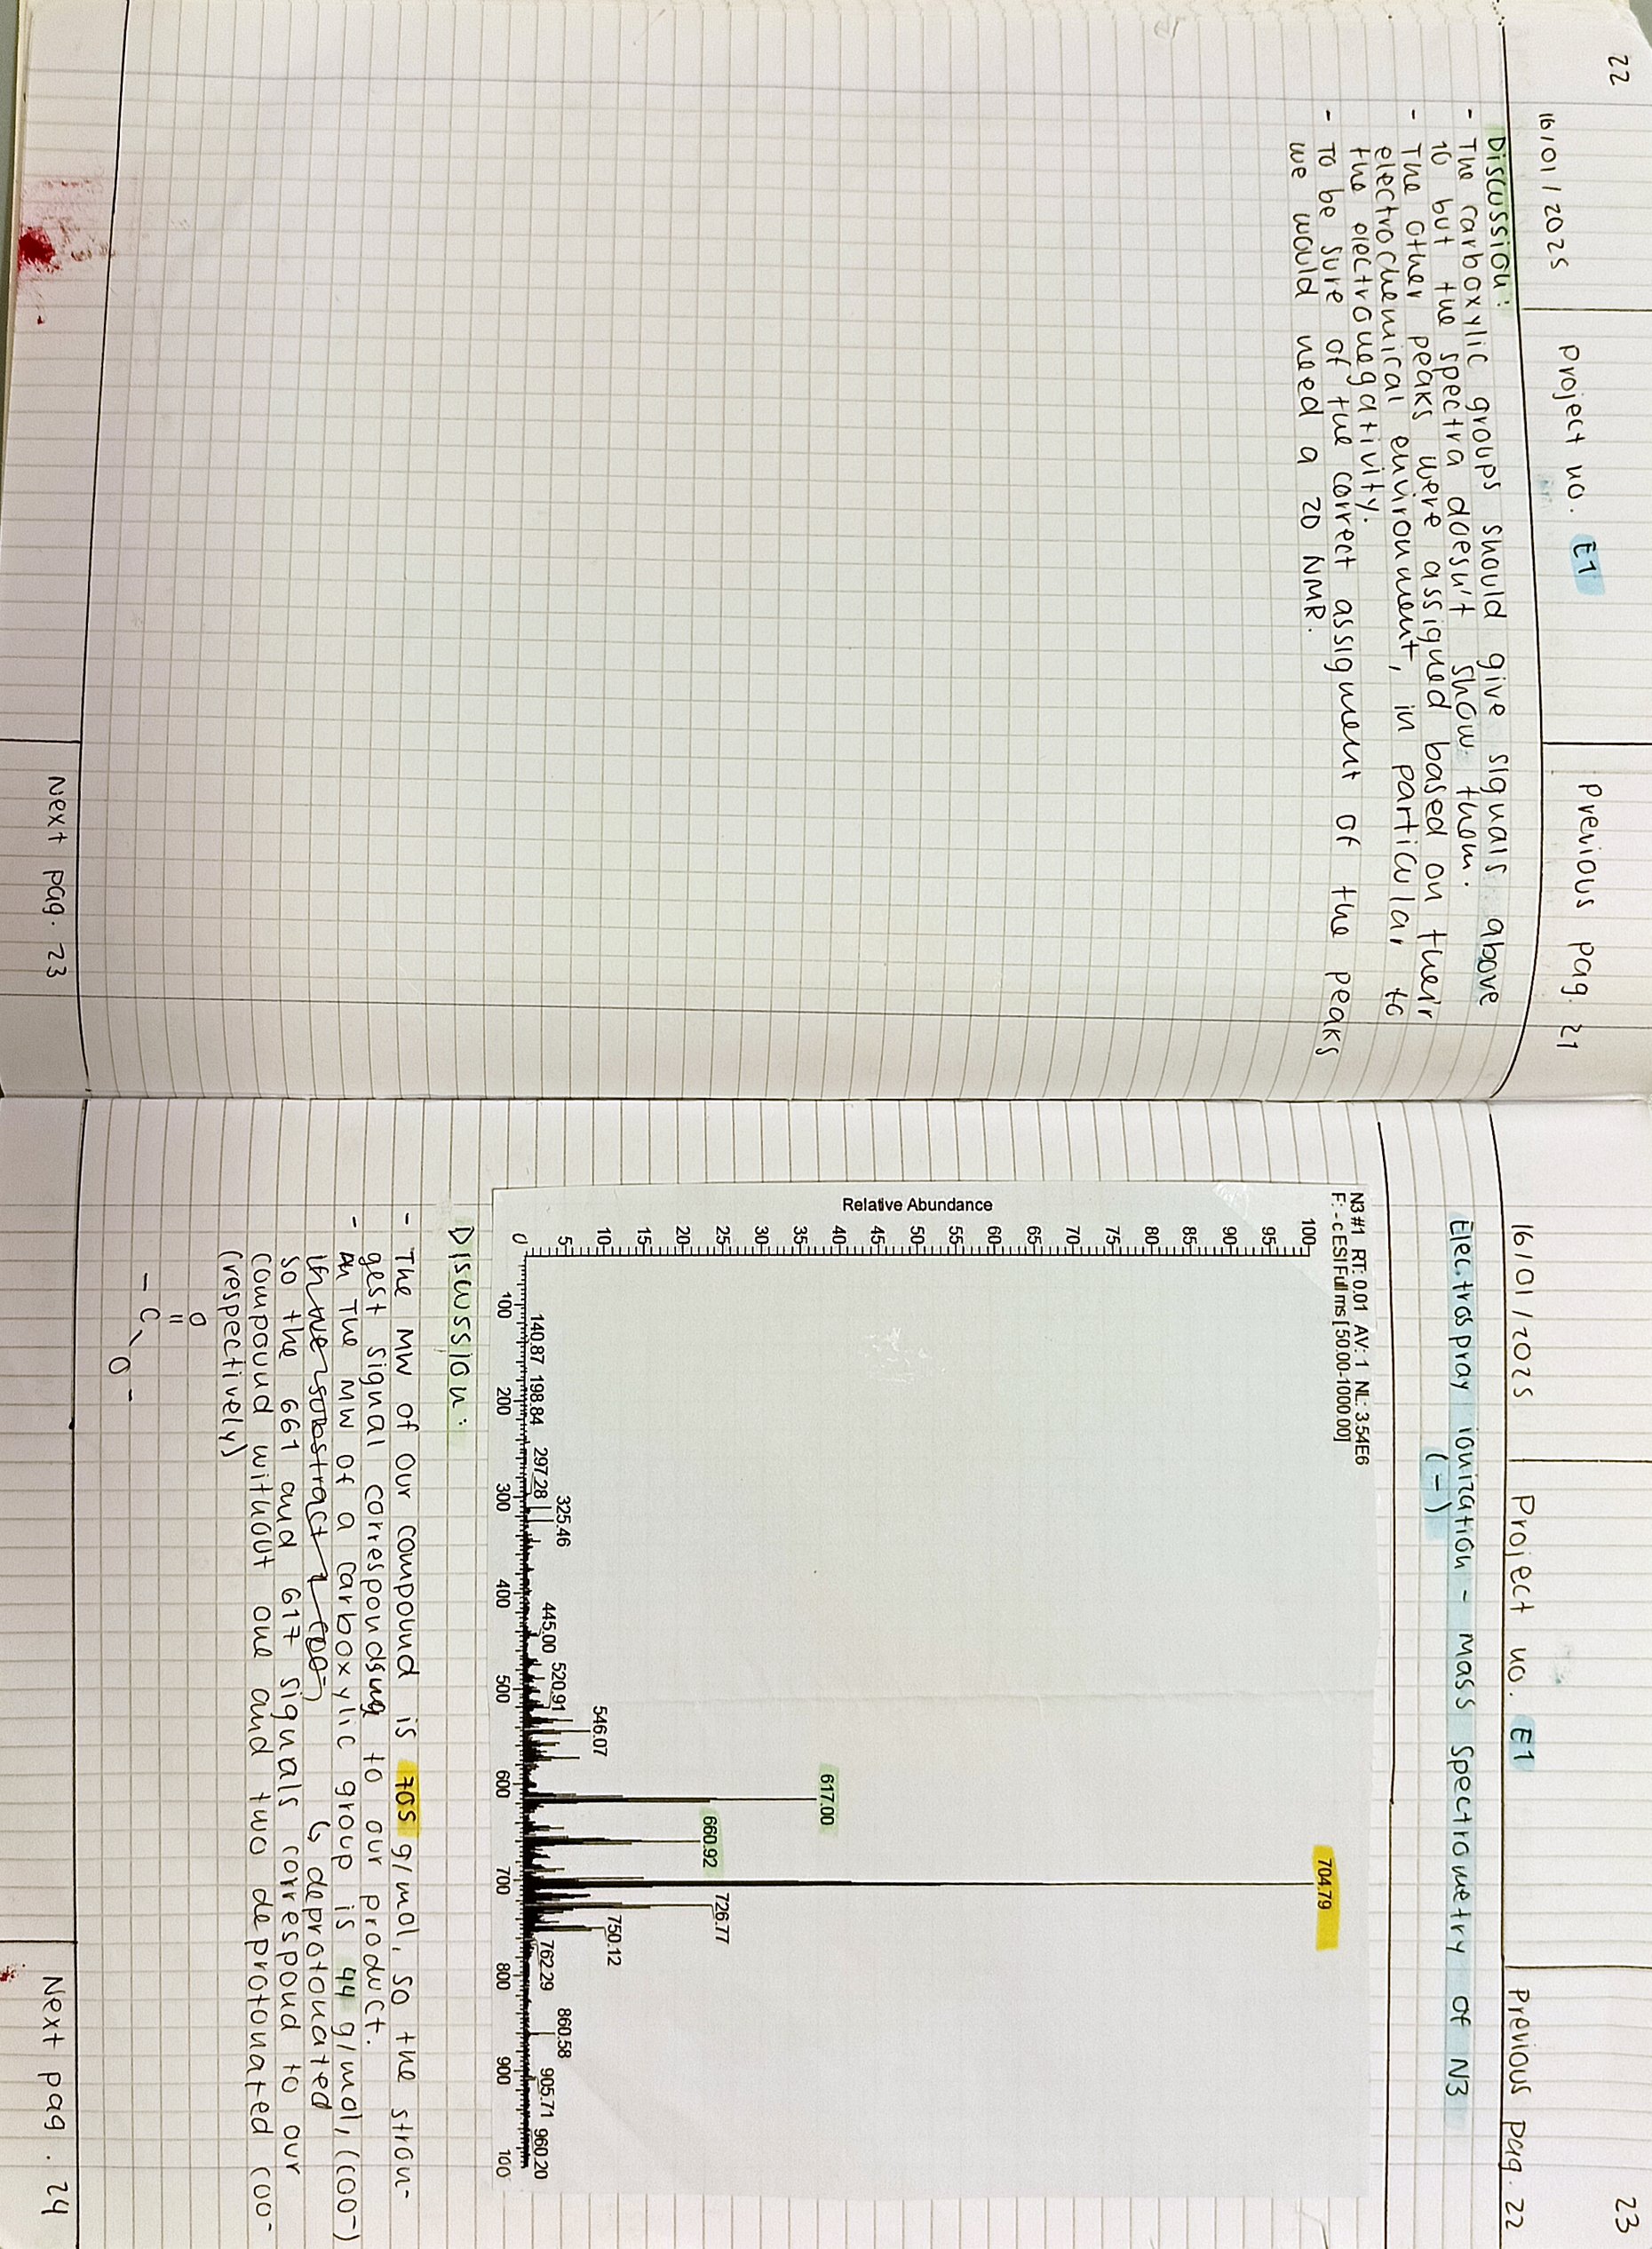 22
16/01/2025
Project no. E1
Previous pag. 21
Discussion:
- The carboxylic groups should give signals above
10 but the spectra doesn't show them.
- The other peaks were assigned based on their
electrochemical environment, in particular to
the electronegativity.
- To be sure of the correct assignment of the peaks
we would need a 2D NMR.
Next pag. 23
23
16/01/2025
Project no. E1
Previous pag. 22
Electrospray ionization - Mass Spectrometry of N3
(-)
N3 #1 RT: 0.01 AV: 1 NL: 3.54E6
F: - c ESI Full ms [50.00-1000.00]
Relative Abundance
100
95
90
85
80
75
70
65
60
55
50
45
40
35
30
25
20
15
10
5
0
704.79
617.00
660.92
726.77
546.07
750.12
325.46
520.91
860.58
140.87 198.84 297.28 445.00 762.29 905.71 960.20
100 200 300 400 500 600 700 800 900 100
Discussion:
- The MW of our compound is 705 g/mol, so the stron-
gest signal corresponding to our product.
- The MW of a carboxylic group is 44 g/mol, (COO⁻)
↳ deprotonated
so the 661 and 617 signals correspond to our
compound without one and two deprotonated COO⁻
(respectively)
O
=
- C
\
O⁻
Next pag. 24